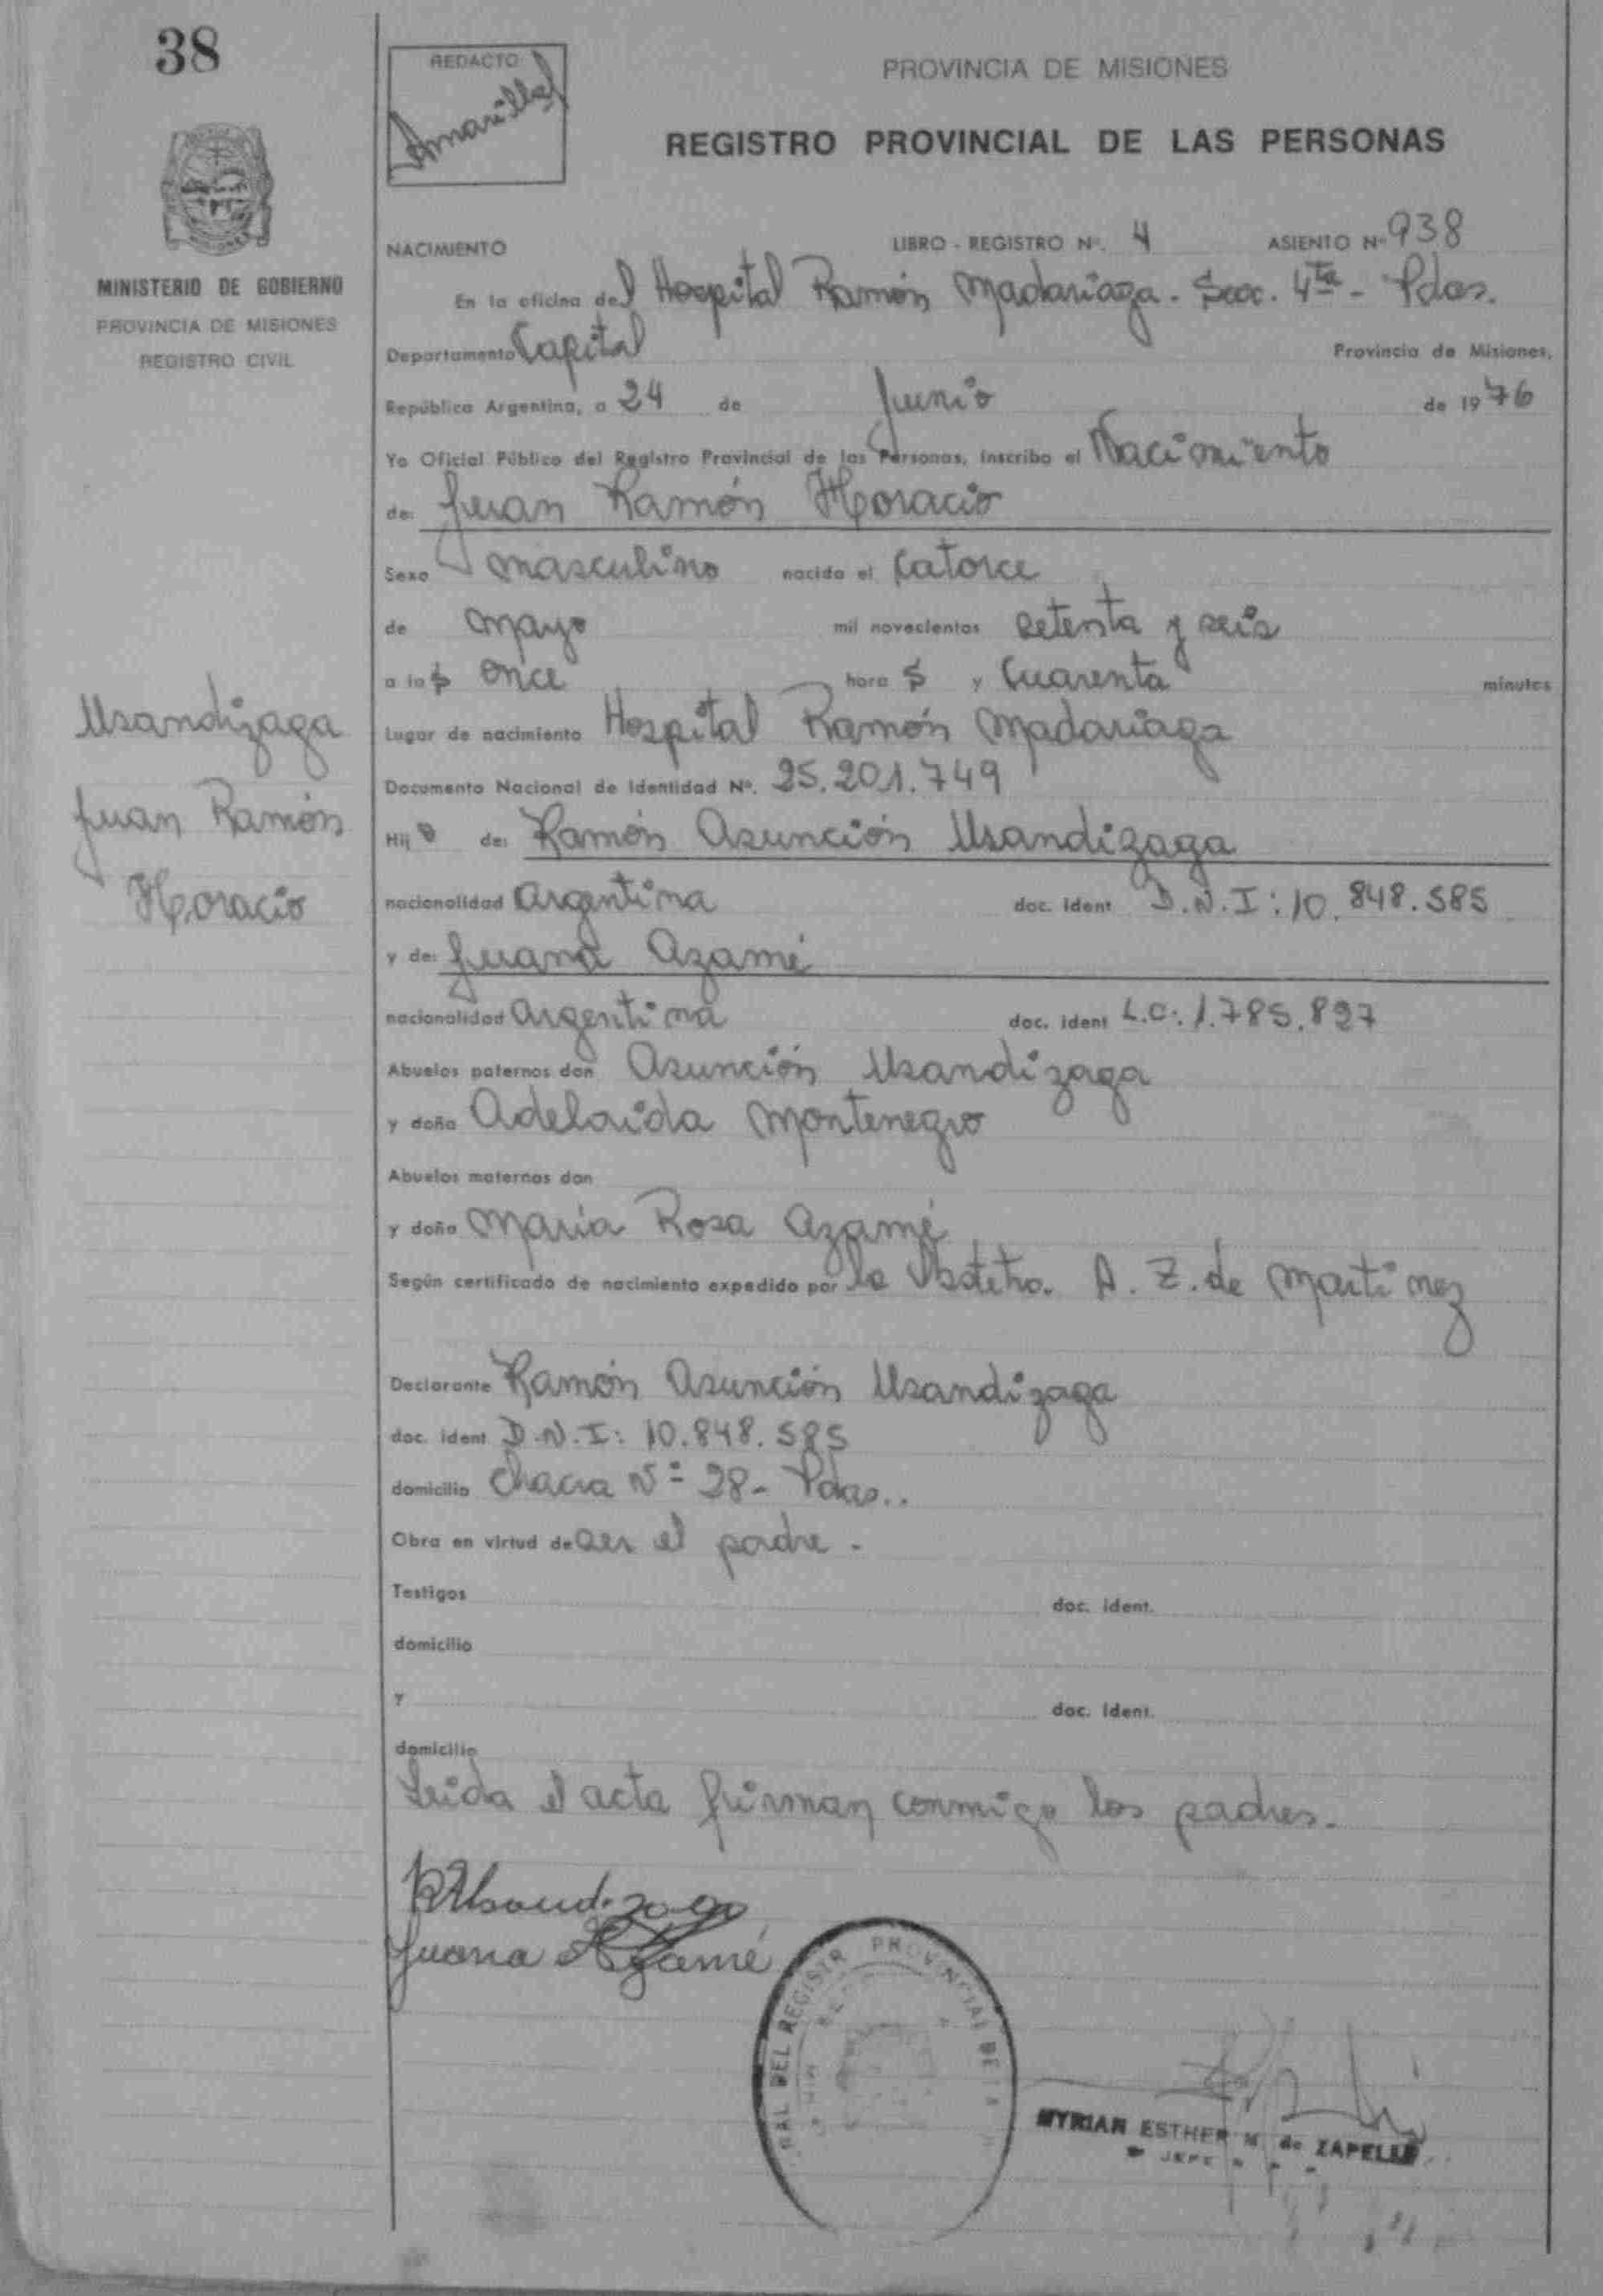 38
REDACTO
Amarilla
PROVINCIA DE MISIONES
REGISTRO PROVINCIAL DE LAS PERSONAS
MINISTERIO DE GOBIERNO
PROVINCIA DE MISIONES
REGISTRO CIVIL
NACIMIENTO LIBRO - REGISTRO Nº. 4 ASIENTO Nº 938
En la oficina del Hospital Ramón Madariaga. Secc. 4ta - Pdas.
Departamento Capital Provincia de Misiones,
República Argentina, a 24 de Junio de 1976
Yo Oficial Público del Registro Provincial de las Personas, inscribo el Nacimiento
de: Juan Ramón Horacio
Sexo masculino nacido el catorce
de mayo mil novecientos setenta y seis
a las once horas y cuarenta minutos
Usandizaga
Juan Ramón
Horacio
Lugar de nacimiento Hospital Ramón Madariaga
Documento Nacional de Identidad Nº. 25.201.749
Hijo de: Ramón Asunción Usandizaga
nacionalidad argentina doc. ident D.N.I: 10.848.585
y de: Juana Azamé
nacionalidad argentina doc. ident L.C. 1.785.827
Abuelos paternos don Asunción Usandizaga
y doña Adelaida Montenegro
Abuelos maternos don
y doña María Rosa Azamé
Según certificado de nacimiento expedido por la Obstetra. A. Z. de Martinez
Declarante Ramón Asunción Usandizaga
doc. ident D.N.I: 10.848.585
domicilio Chacra Nº 28- Pdas..
Obra en virtud de ser el padre.
Testigos doc. ident.
domicilio
y doc. ident.
domicilio
Leida el acta firman conmigo los padres.
RAUsandizaga
Juana Azamé
DEL REGISTR PROVINCIAL DE LA
MYRIAN ESTHER M. de ZAPELLI
JEFE